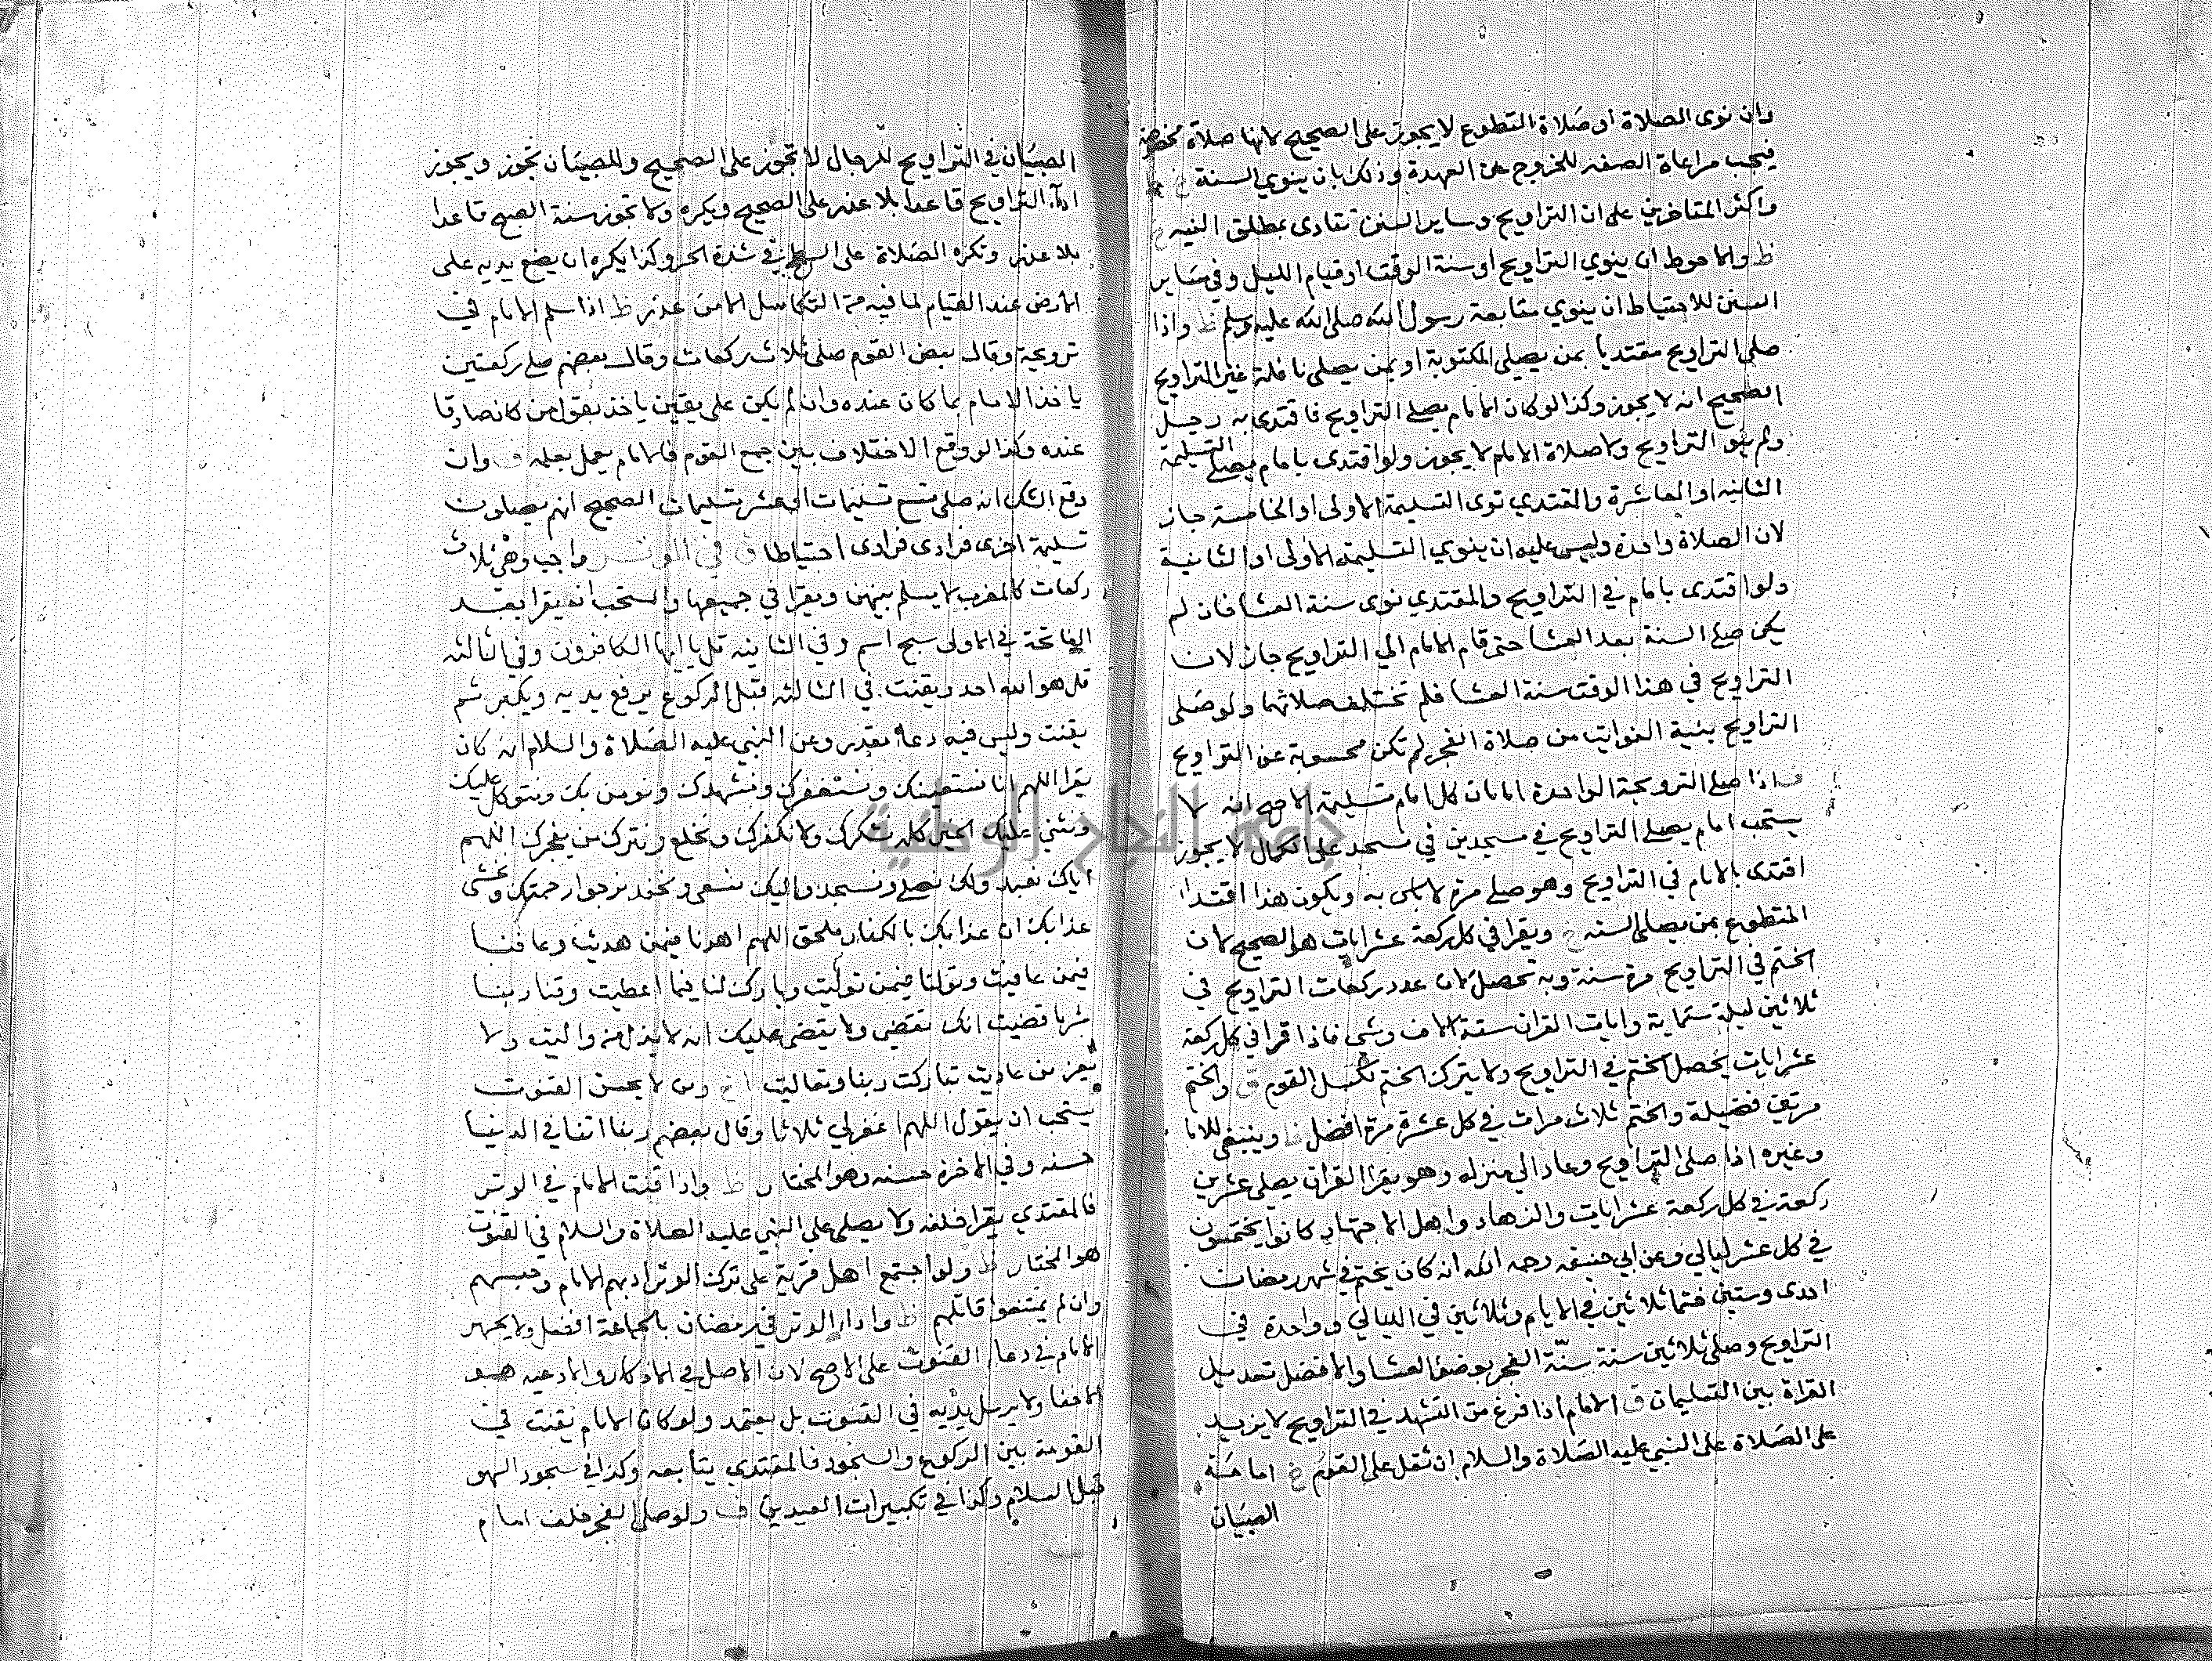 وان نوى الصلاة او صلاة التطوع لا يجوز على الصحيح لانها صلاة مخصوصة
فيجب مراعاة الصفه للخروج عن العهدة وذلك بان ينوي السنة خ
واكثر المتاخرين على ان التراويح وساير السنن تتادى بمطلق النيه خ
ظ والاحوط ان ينوي التراويح او سنة الوقت او قيام الليل وفي ساير
السنن للاحتياط ان ينوي متابعة رسول الله صلى الله عليه وسلم ظ واذا
صلى التراويح مقتديا بمن يصلي المكتوبة او بمن يصلى نافلة غير التراويح
الصحيح انه لا يجوز وكذا لو كان الامام يصلي التراويح فاقتدى به رجل
ولم ينو التراويح ولا صلاة الامام لا يجوز ولو اقتدى بامام يصلي التسليمة
الثانيه او العاشرة والمقتدي نوى التسليمة الاولى او الخامسة جاز
لان الصلاة واحدة وليس عليه ان ينوي التسليمة الاولى او الثانية
ولو اقتدى بامام في التراويح والمقتدي نوى سنة العشا فان لم
يكن صلى السنة بعد العشا حتى قام الامام الي التراويح جاز لان
التراويح في هذا الوقت سنة العشا فلم تختلف صلاتهما ولو صلى
التراويح بنية الفوايت من صلاة الفجر لم تكن محسوبة عن التراويح
ف اذا صلى الترويحة الواحدة امامان كل امام تسليمة الاصح انه لا
يستحب امام يصلي التراويح في مسجدين في مسجد على الكمال لا يجوز
اقتدى بالامام في التراويح وهو صلى مرة لا باس به ويكون هذا اقتدا
المتطوع بمن يصلى السنه خ ويقرا في كل ركعة عشر ايات هو الصحيح لان
الختم في التراويح مرة سنة وبه تحصل لان عدد ركعات التراويح في
ثلاثين ليلة ستماية وايات القران ستة الاف وشي فاذا قرا في كل ركعة
عشر ايات يحصل الختم في التراويح ولا يترك الختم لكسل القوم ق والختم
مرتين فضيلة والختم ثلاث مرات في كل عشرة مرة افضل وينبغي للاما
وغيره اذا صلى التراويح وعاد الى منزله وهو يقرا القران يصلى عشرين
ركعة في كل ركعة عشر ايات والزهاد واهل الاجتهاد كانوا يختمون
في كل عشر ليالي وعن ابي حنيفه رحمه الله انه كان يختم في شهر رمضان
احدى وستين ختما ثلاثين في الايام وثلاثين في الليالي وواحدة في
التراويح وصلى ثلاثين سنة سنّة الفجر بوضو العشا والافضل تعديل
القراة بين التسليمات ق الامام اذا فرغ من التشهد في التراويح لا يزيد
على الصّلاة على النبي عليه الصّلاة والسلام ان ثقل على القوم خ امامة
الصبيان
الصبيان في التراويح للرجال لا تجوز على الصحيح وللصبيان تجوز ويجوز
ادآ التراويح قاعدا بلا عذر على الصحيح ويكره ولا تجوز سنة الصبح قاعدا
بلا عذر وتكره الصّلاة على السطح في شدة الحر وكذا يكره ان يضع يديه على
الارض عند القيام لما فيه من التكاسل الا من عذر ظ اذا سلم الامام في
ترويحة وقال بعض القوم صلى ثلاث ركعات وقال بعضهم صلى ركعتين
ياخذ الامام بما كان عنده وان لم يكن على يقين ياخذ بقول من كان صادقا
عنده وكذا لو وقع الاختلاف بين جميع القوم فالامام يعمل بعلمه ف وان
وقع الشك انه صلى تسع تسليمات او عشر تسليمات الصحيح انهم يصلون
تسليمة اخرى فرادى فرادى احتياطا ق في الوتر واجب وهي ثلاث
ركعات كالمغرب لا يسلم بينهن ويقرا في جميعها والمستحب ان يقرا بعد
الفاتحة في الاولى سبح اسم وفي الثانيه قل يا ايها الكافرون وفي الثالثه
قل هو الله احد ويقنت في الثالثه قبل الركوع يرفع يديه ويكبر ثم
يقنت وليس فيه دعا مقدر وعن النبي عليه الصّلاة والسلام انه كان
يقرا اللهم انا نستعينك ونستغفرك ونشهدك ونومن بك ونتوكل عليك
ونثني عليك الخير كله نشكرك ولا نكفرك ونخلع ونترك من يفجرك اللهم
اياك نعبد ولك نصلي ونسجد واليك نسعى ونحفد نرجوا رحمتك ونخشى
عذابك ان عذابك بالكفار ملحق اللهم اهدنا فيمن هديت وعافنا
فيمن عافيت وتولنا فيمن توليت وبارك لنا فيما اعطيت وقنا ربنا
شر ما قضيت انك تقضي ولا يقضى عليك انه لا يذل من واليت ولا
يعز من عاديت تباركت ربنا وتعاليت خ ومن لا يحسن القنوت
يستحب ان يقول اللهم اغفر لي ثلاثا وقال بعضهم ربنا اتنا في الدنيا
حسنه وفي الاخرة حسنه وهو المختار ظ واذا قنت الامام في الوتر
فالمقتدي يقرا خلفه ولا يصلى على النبي عليه الصلاة والسلام في القنوت
هو المختار ظ ولو اجتمع اهل قرية على ترك الوتر ادبهم الامام وحبسهم
وان لم يمتنعوا قاتلهم ظ وادا الوتر في رمضان بالجماعة افضل ولا يجهر
الامام في دعا القنوت على الاصح لان الاصل في الاذكار والادعيه هو
الاخفا ولا يرسل يديه في القنوت بل يعتمد ولو كان الامام يقنت في
القومة بين الركوع والسجود فالمقتدي يتابعه وكذا في سجود السهو
قبل السلام وكذا في تكبيرات العيدين ف ولو صلى الفجر خلف امام
جامعة النجاح الوطنية